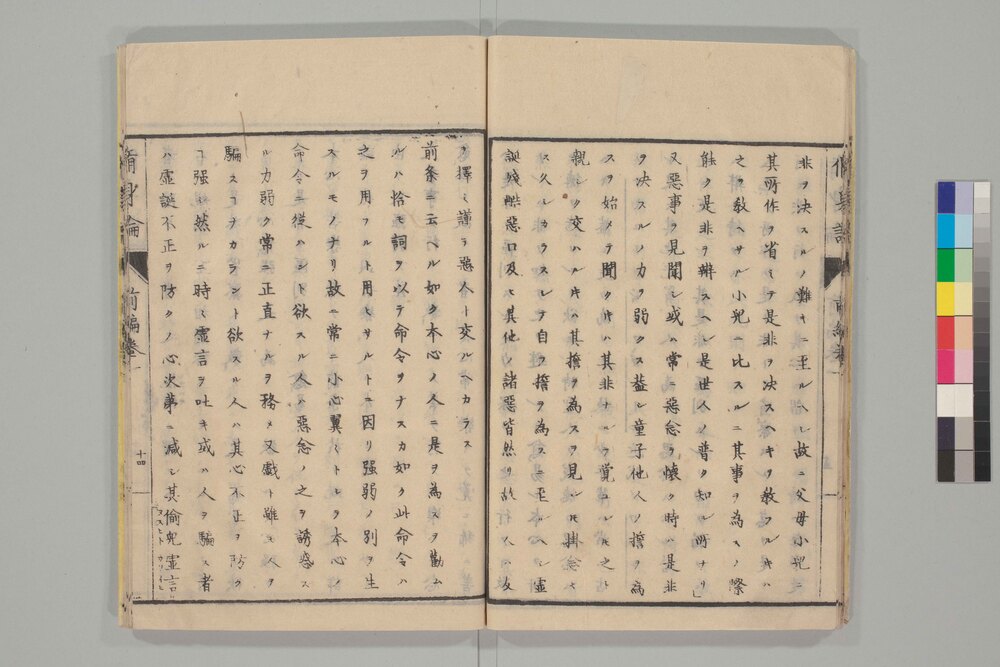 非ヲ決スルノ難キニ至ルヘシ故ニ父母小児ニ
其所作ヲ省ミテ是非ヲ決スヘキヲ教フルキハ
之ヲ教ヘサル小児ニ比スルニ其事ヲ為スノ際
能ク是非ヲ辨スヘシ是世人ノ普ク知ル所ナリ」
又惡事ヲ見聞シ或ハ常ニ惡念ヲ懷ク時ハ是非
ヲ决スルノカヲ弱クス蓋シ童子他人ノ擔ヲ為
スヲ始メテ聞クキハ其非ナルヲ覚ユルモ之ト
親シク交ハルキハ其擔ヲ為スヲ見ルモ掛念セ
ス久シカラスシテ自ラ擔ヲ為スニ至ルヘシ虚
誕殘酷惡口及ヒ其他ノ諸惡皆然リ故ニ人ハ友
ヲ擇ミ謹テ惡人ト交ルヘカラス
前条ニ云ヘル如ク本心ノ人ニ是ヲ為スヲ勸ム
ルハ恰モ詞ヲ以テ命令ヲナスカ如ク此命令ハ
之ヲ用フルト用ヒサルトニ因リ强弱ノ別ヲ生
スルモノナリ故ニ常ニ小心翼々トシテ本心ノ
命令ニ從ハント欲スル人ハ惡念ノ之ヲ誘惑ス
ルカ弱ク常ニ正直ナルヲ務メ又戯ト雖モ人ヲ
騙スヿナカラント欲スル人ハ其心不正ヲ防ク
ヿ强シ然ルニ時ニ虚言ヲ吐キ或ハ人ヲ騙ス者
ハ虚誕不正ヲ防クノ心次第ニ减シ其偷児虚言
脩身論
前編卷一
十四